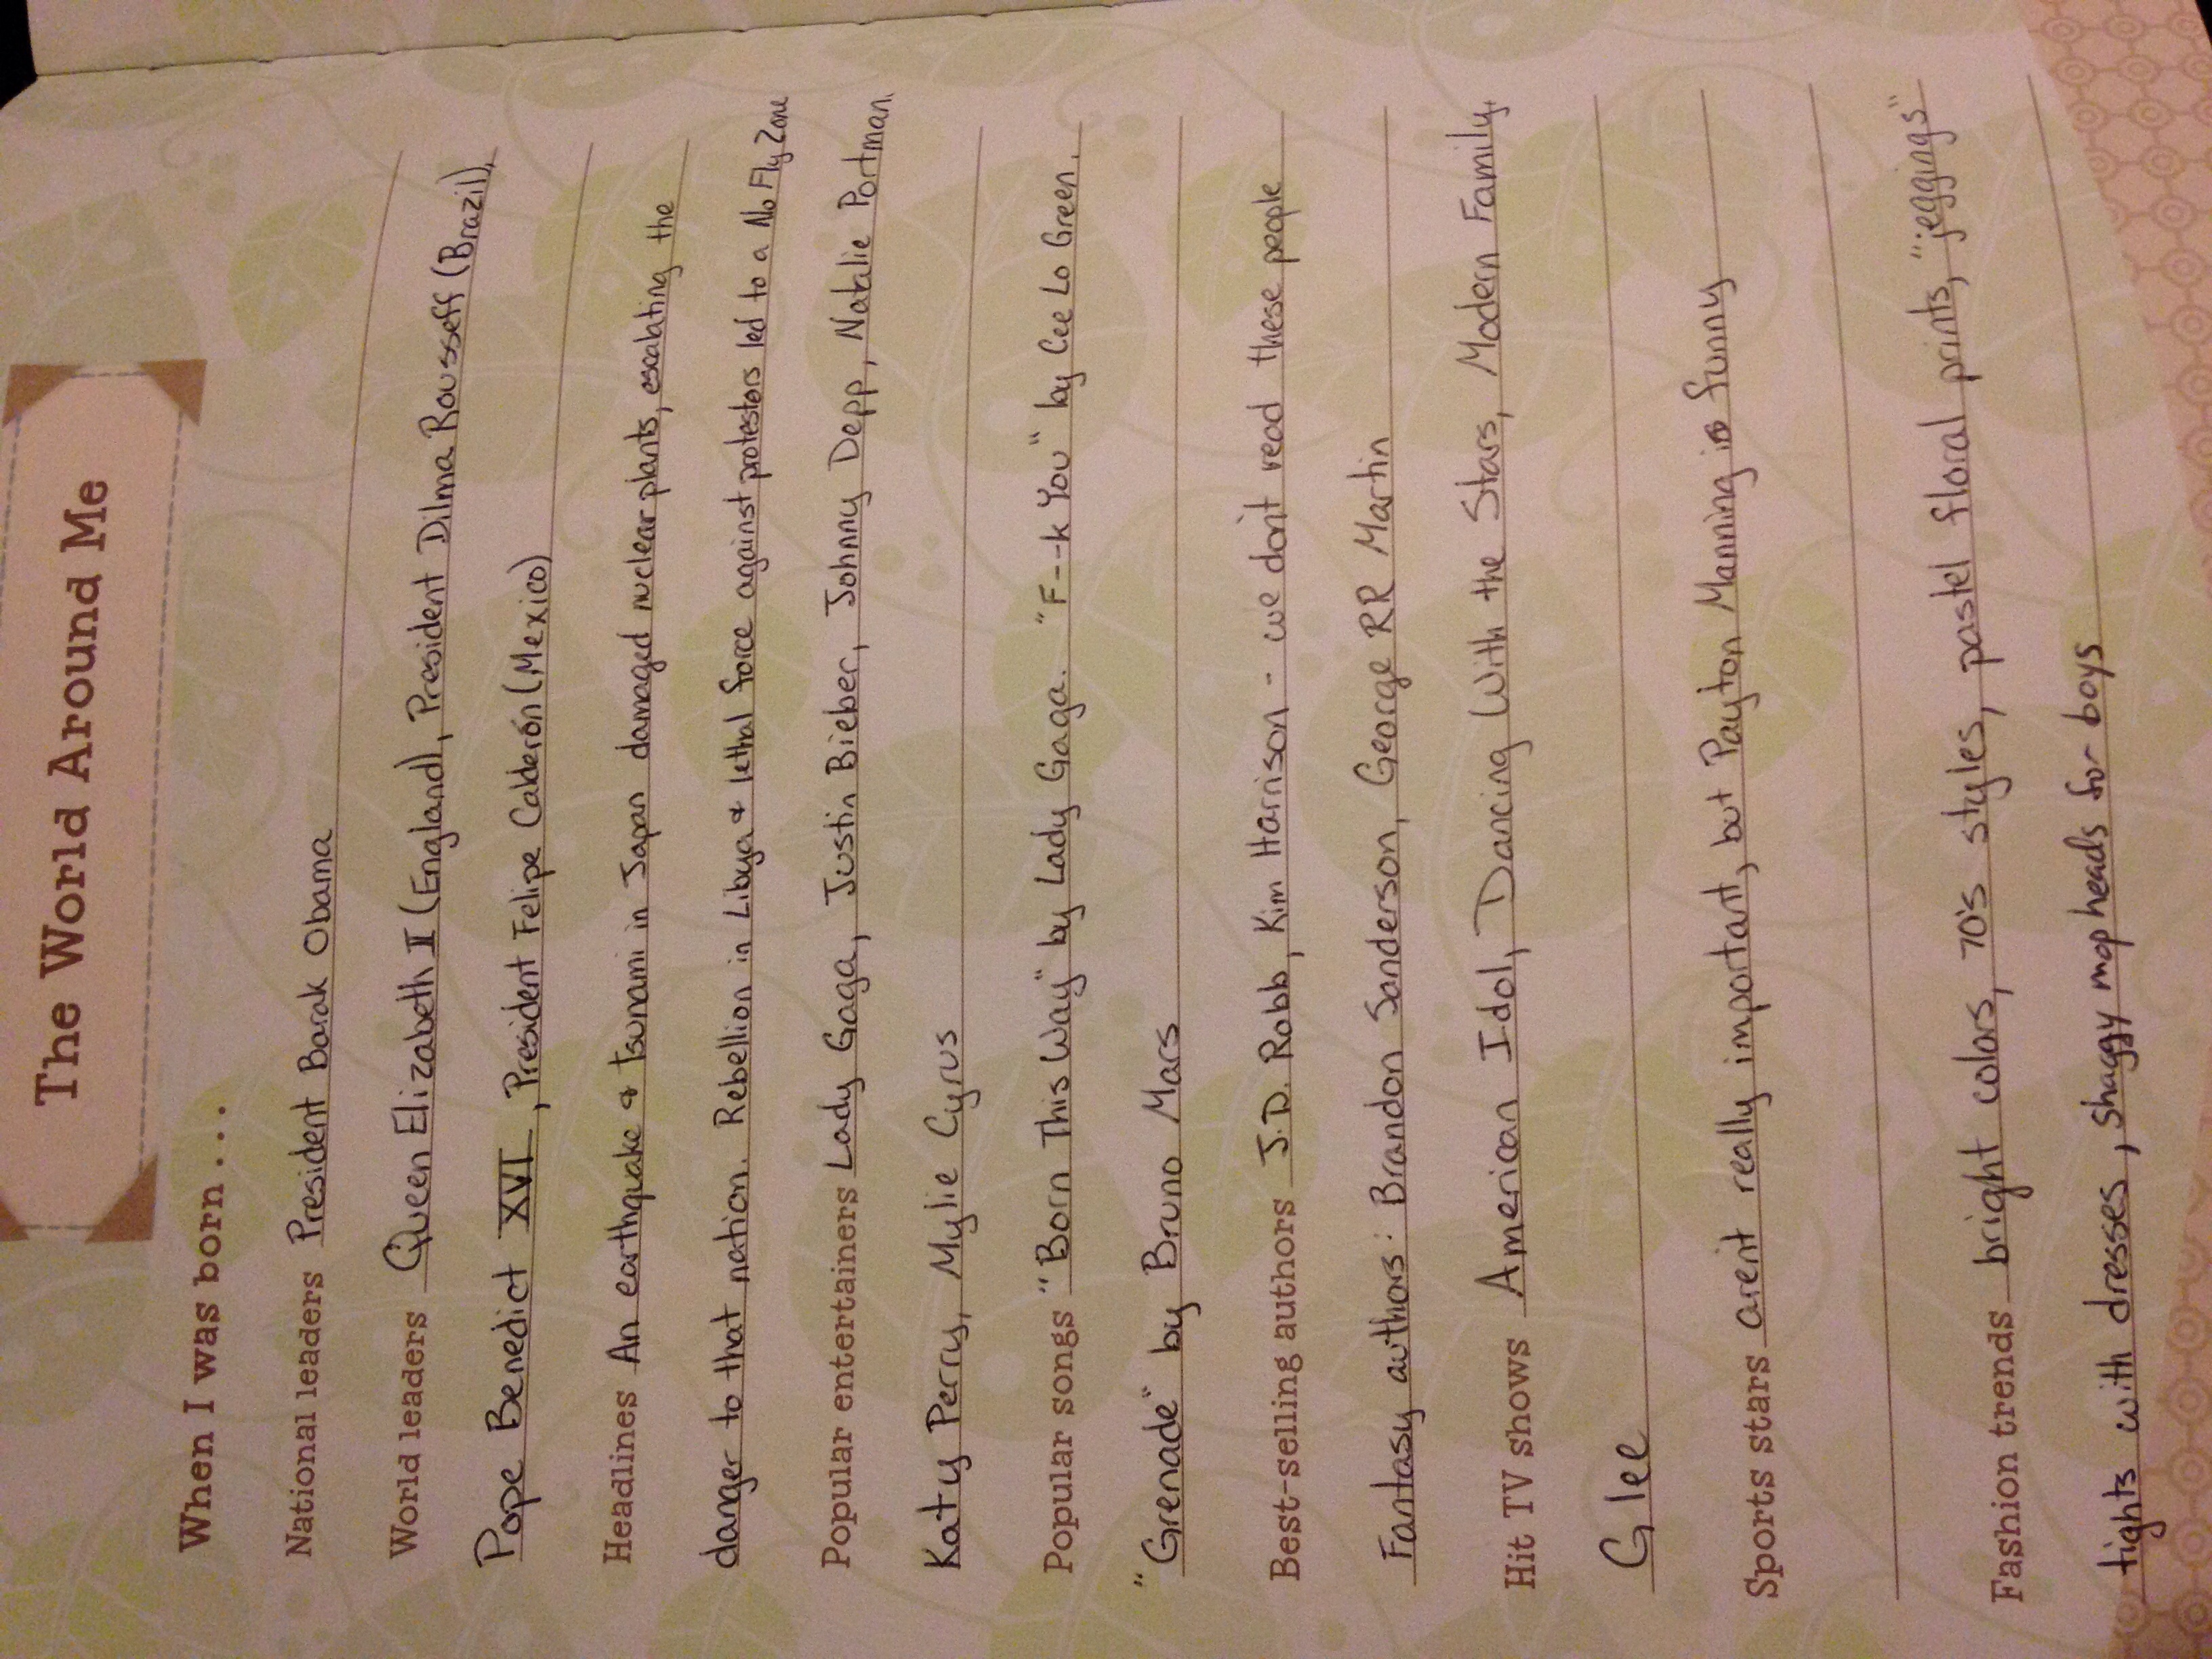 The World Around Me
When I was born...
National leaders President Barak Obama
World leaders Queen Elizabeth II (England), President Dilma Rousseff (Brazil),
Pope Benedict XVI, President Felipe Calderón (Mexico)
Headlines An earthquake & tsunami in Japan damaged nuclear plants, escalating the
danger to that nation. Rebellion in Libya & lethal force against protestors led to a No Fly Zone
Popular entertainers Lady Gaga, Justin Bieber, Johnny Depp, Natalie Portman,
Katy Perry, Mylie Cyrus
Popular songs "Born This Way" by Lady Gaga. "F--k You" by Cee Lo Green.
"Grenade" by Bruno Mars
Best-selling authors J.D. Robb, Kim Harrison - we don't read these people
Fantasy authors: Brandon Sanderson, George RR Martin
Hit TV shows American Idol, Dancing With the Stars, Modern Family,
Glee
Sports stars arent really important, but Payton Manning is funny
Fashion trends bright colors, 70's styles, pastel floral prints, "jeggings"
tights with dresses, shaggy mop heads for boys